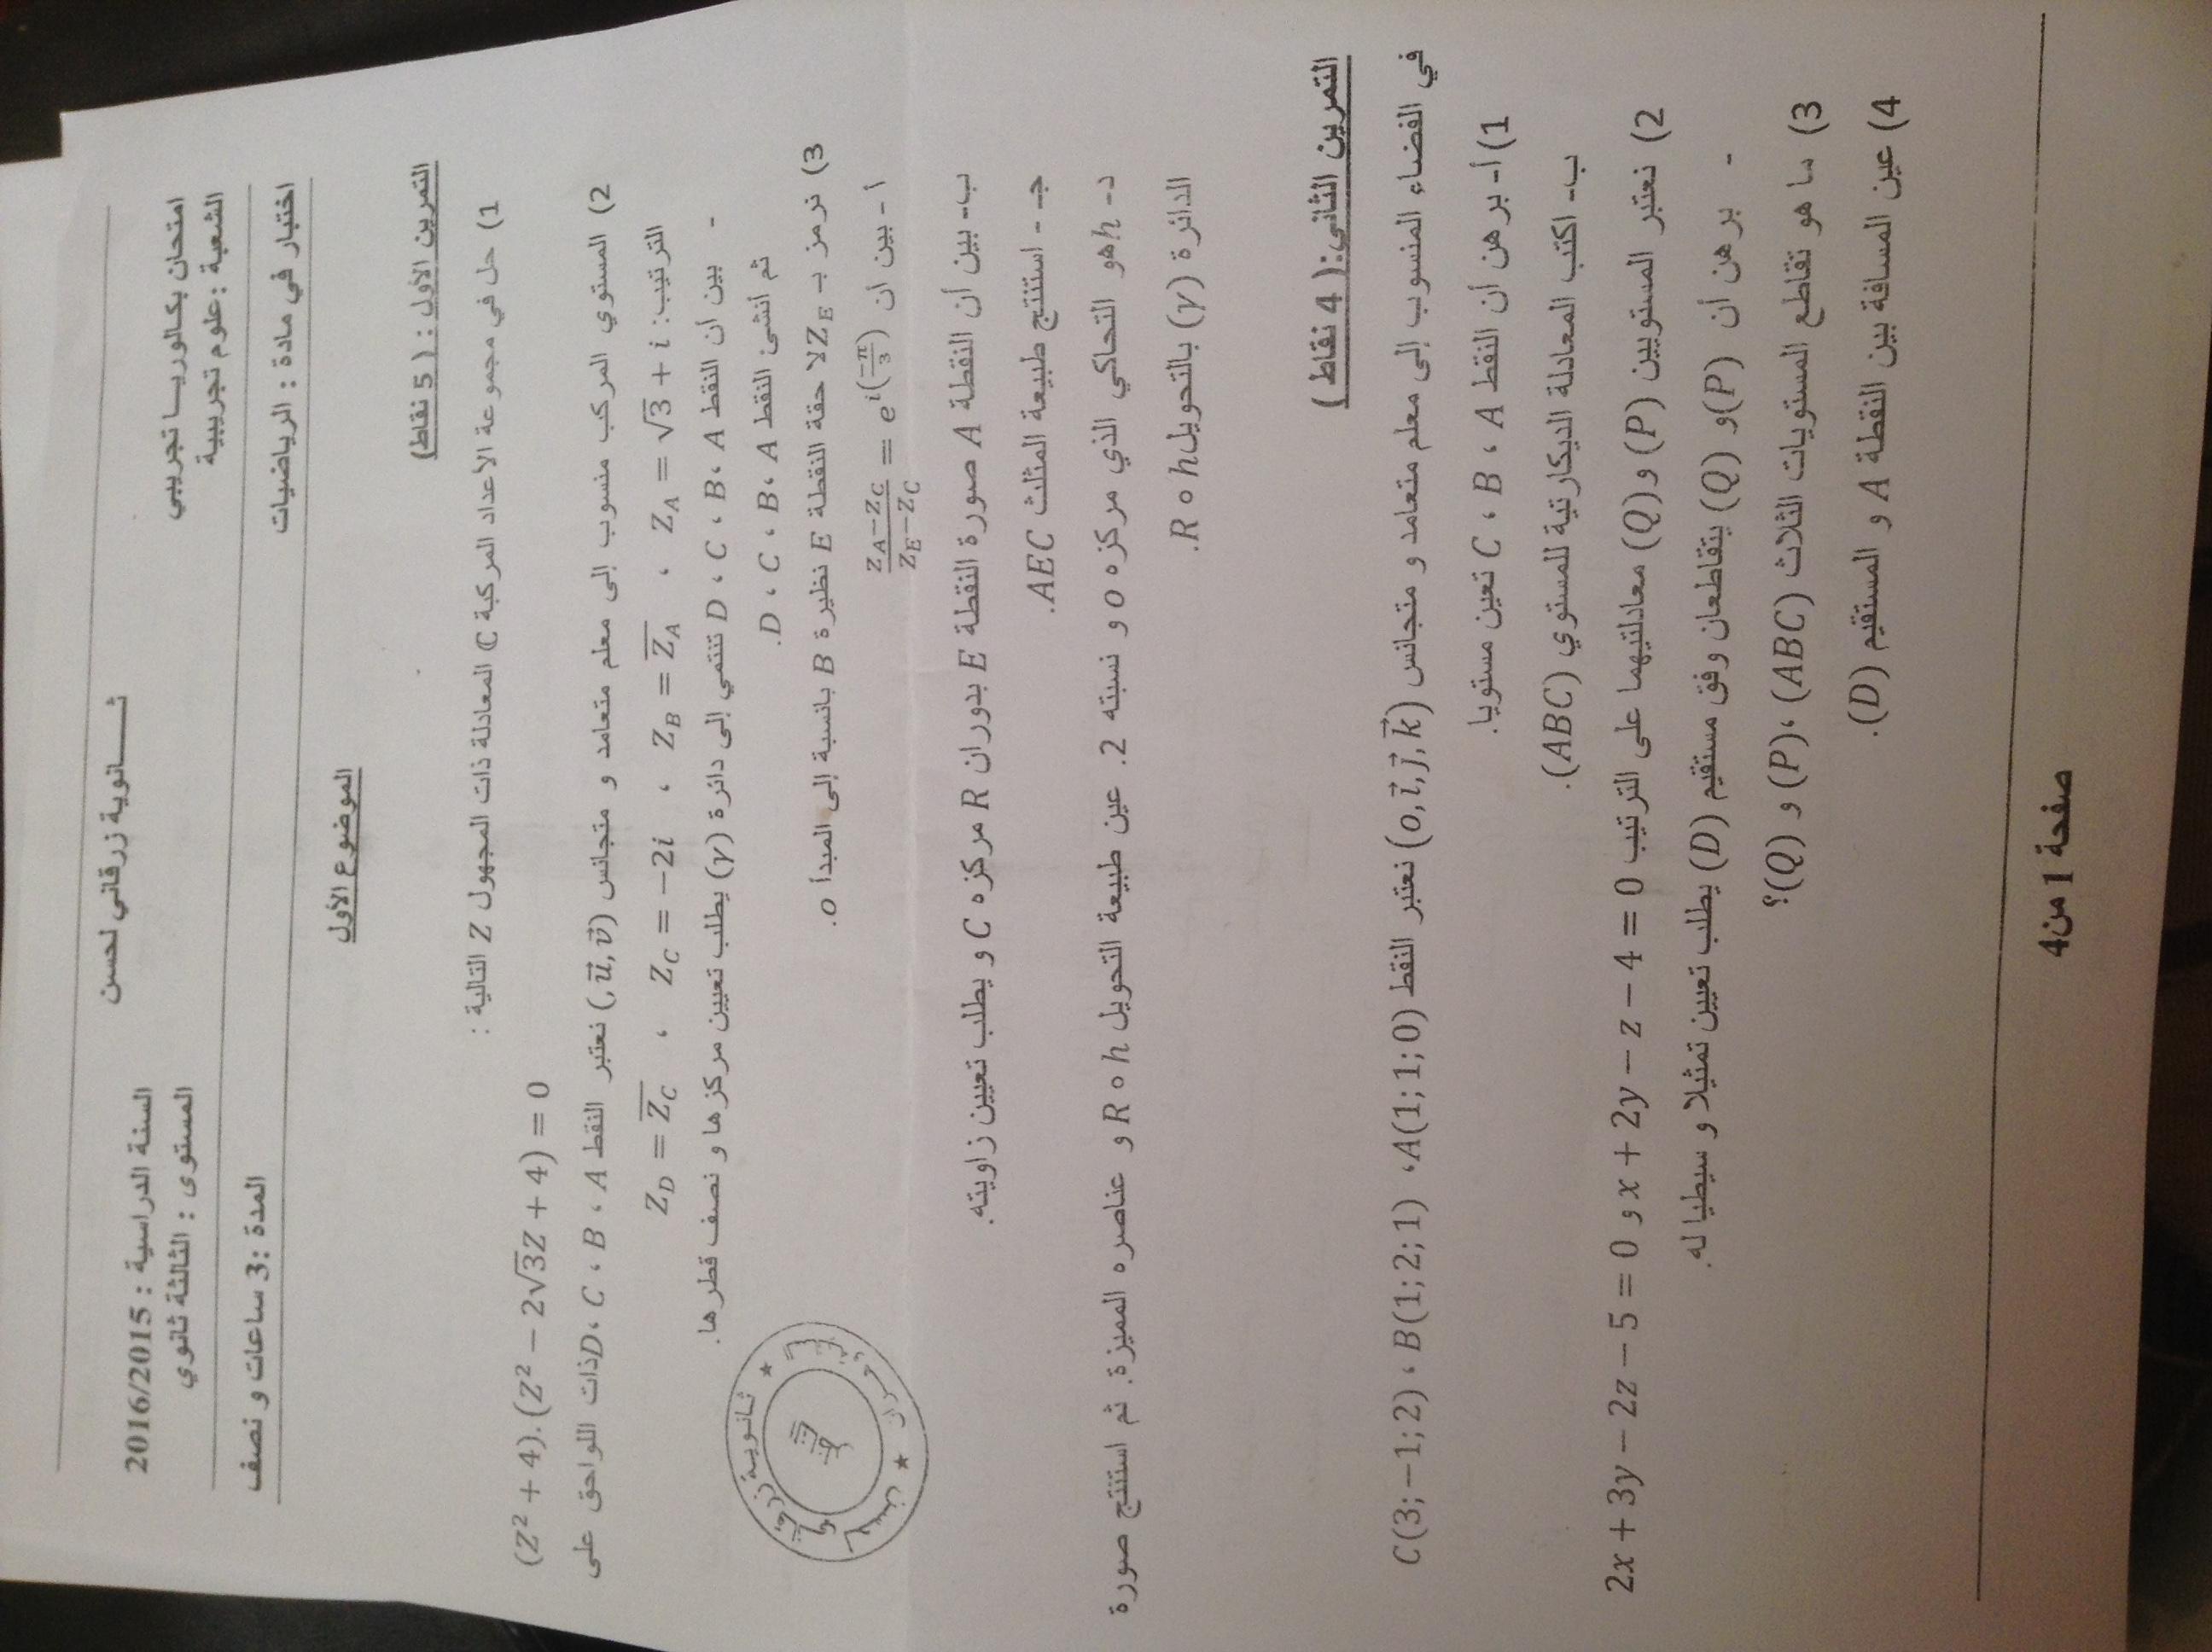 ثـــــانوية زرقاني لحسن
امتحان بكالوريـــا تجريبي السنة الدراسية : 2016/2015
الشعبة :علوم تجريبية المستوى : الثالثة ثانوي
اختبار في مادة : الرياضيات المدة :3 ساعات و نصف
الموضوع الأول
التمرين الأول : ( 5 نقاط)
1) حل في مجموعة الأعداد المركبة ℂ المعادلة ذات المجهول Z التالية :
(Z² + 4).(Z² − 2√3Z + 4) = 0
2) المستوي المركب منسوب إلى معلم متعامد و متجانس (, u⃗, v⃗) نعتبر النقط A ، B ، C ،D ذات اللواحق على
الترتيب: Z_A = √3 + i ، Z_B = \overline{Z_A} ، Z_C = −2i ، Z_D = \overline{Z_C}
- بين أن النقط A ،B ، C ، D تنتمي إلى دائرة (γ) يطلب تعيين مركزها و نصف قطرها.
ثم أنشئ النقط A ،B ، C ، D.
3) نرمز بـ Z_E لا حقة النقطة E نظيرة B بانسبة إلى المبدأ o.
أ - بين أن (Z_A − Z_C)/(Z_E − Z_C) = e^{i(−π/3)}
ب- بين أن النقطة A صورة النقطة E بدوران R مركزه C و يطلب تعيين زاويته.
جـ - استنتج طبيعة المثلث AEC.
د- h هو التحاكي الذي مركزه o و نسبته 2. عين طبيعة التحويل R ∘ h و عناصره المميزة. ثم استنتج صورة
الدائرة (γ) بالتحويل R ∘ h.
التمرين الثاني:( 4 نقاط )
في الفضاء المنسوب إلى معلم متعامد و متجانس (o, i⃗, j⃗, k⃗) نعتبر النقط A(1; 1; 0)، B(1; 2; 1) ، C(3; −1; 2)
1) أ- برهن أن النقط A ، B ، C تعين مستويا.
ب- اكتب المعادلة الديكارتية للمستوي (ABC).
2) نعتبر المستويين (P) و (Q) معادلتيهما على الترتيب x + 2y − z − 4 = 0 و 2x + 3y − 2z − 5 = 0
- برهن أن (P) و (Q) يتقاطعان وفق مستقيم (D) يطلب تعيين تمثيلا و سيطيا له.
3) ما هو تقاطع المستويات الثلاث (ABC) ،(P) و (Q)؟
4) عين المسافة بين النقطة A و المستقيم (D).
صفحة 1 من4
ثانوية